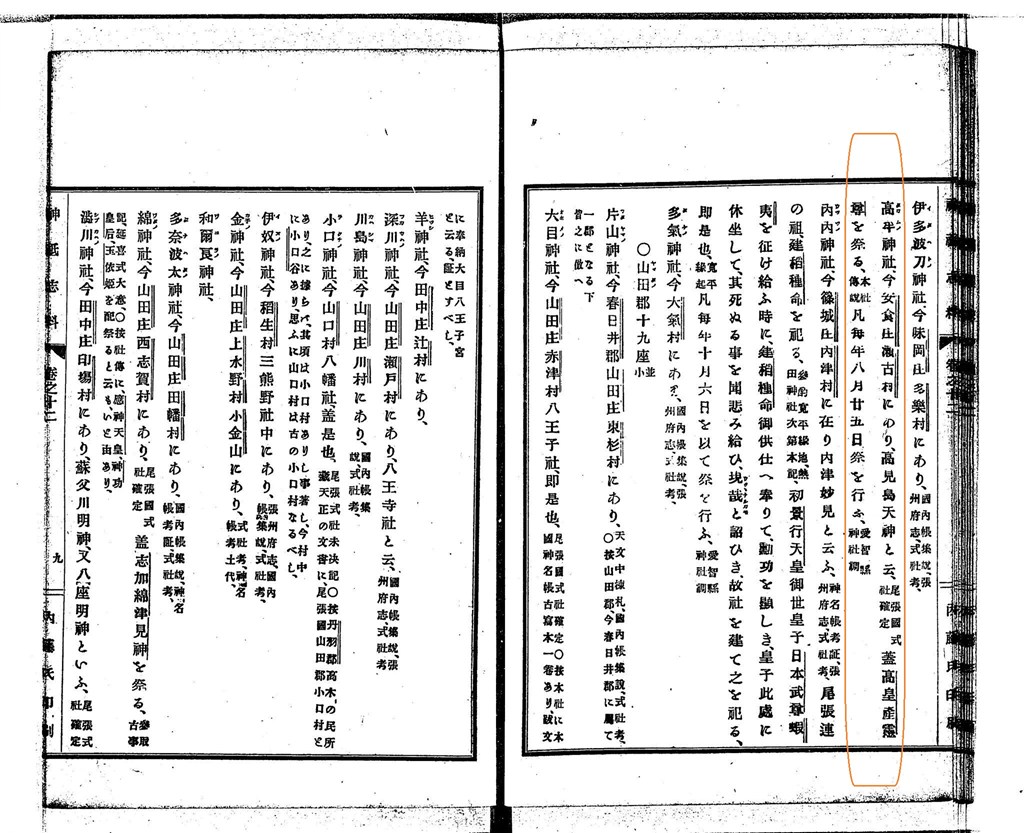 伊多波刀神社、今味岡庄多樂村にあり、國內帳集說、張州府志、式社考、
高牟神社、今安食庄瀨古村にあり高見島天神と云、尾張國式社確定 蓋高皇產靈
尊を祭る、本社傳說 凡每年八月廿五日祭を行ふ、愛智縣神社調
內內神社、今篠城庄內津村に在り內津妙見と云ふ、神名帳考証、張州府志、式社考、尾張連
の祖、建稻種命を祀る、田神社次第本記、初景行天皇御世皇子日本武尊蝦
夷を征け給ふ時に、建稻種命御供仕へ奉りて、勳功を顯しき、皇子此處に
休坐して、其死ぬる事を聞悲み給ひ、現哉と詔ひき、故社を建て之を祀る、
即是也、寬平緣起 凡每年十月六日を以て祭を行ふ、愛智縣神社調
多氣神社、今大氣村にあり、國內帳集說、張州府志、式社考、
〇山田郡十九座並小
片山神社、今春日井郡山田庄東杉村にあり、天文中棟札、國內帳集說、式社考、〇按山田郡今春日井郡に屬て
一郡となる下皆之に傚へ
大目神社、今山田庄赤津村八王子社、即是也、尾張國式社確定〇按本社に本國神名帳古寫本一卷あり、跋文
に奉納大目八王子宮と云る、証とすべし、
羊神社、今田中庄辻村にあり、
深川神社、今山田庄瀨戶村にあり、八王寺社と云、國內帳集說、張州府志、式社考
川島神社、今山田庄川村にあり、國內帳集說、式社考、
小口神社、今山口村八幡社蓋是也、尾張式社未決記〇按丹羽郡高木の民所藏天正の文書に、尾張國山田郡小口村と
あり、之に據らば、其頃は小口村ありし事著し、今村中に小口谷あり、思ふに山口村は古の小口村なるべし、
伊奴神社、今稻生村三熊野社中にあり、張州府志、國內帳集說、式社考、
金神社、今山田庄上水野村小金山にあり、式社考、神名帳考土代、
和爾良神社、
多奈波太神社、今山田庄田幡村にあり、國內帳集說、神名帳考証、式社考、
綿神社、今山田庄西志賀村にあり、尾張國式社確定 蓋志加綿津見神を祭る、參取古事
記、延喜式大意〇按社傳に、應神天皇、神功皇后、玉依姬を配祭ると云もいと由あり、
澁川神社、今田中庄印塲村にあり、蘇父川明神、又八座明神といふ、尾張式社確定
神祇志料
卷之十二
九
內藤氏印刷